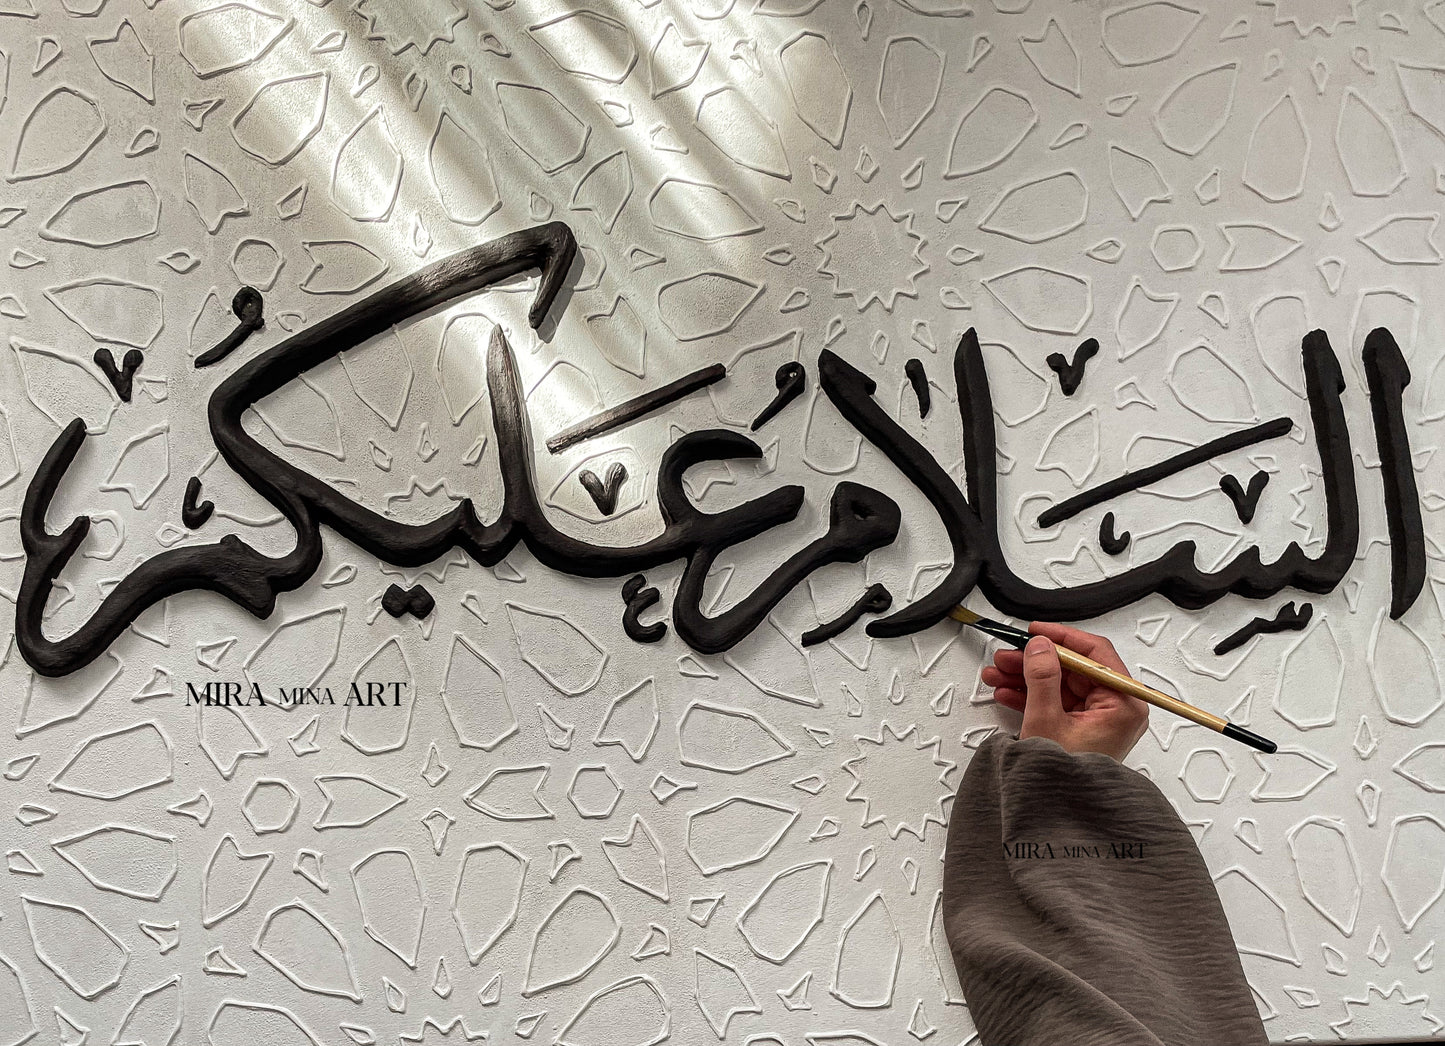 السلام عليكم
MIRA MINA ART
MIRA MINA ART